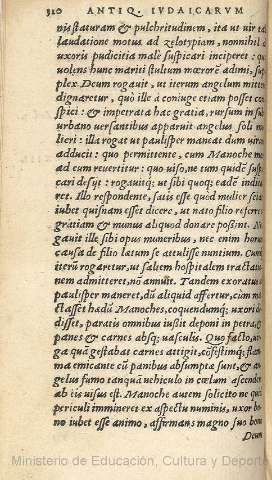 310 ANTIQ. IVDAICARVM
nis staturam & pulchritudinem, ita ut uir ta
laudatione motus ad zelotypiam, nonnihil d
uxoris pudicitia malè suspicari inciperet: q
uolens hunc mariti stultum mœrorē adimi, sup
plex Deum rogauit, ut iterum angelum mitte
dignaretur, quò ille à coniuge etiam posset con
spici: & imperata hac gratia, rursum in sub
urbano uersantibus apparuit angelus soli m
lieri: illa rogat ut paulisper maneat dum uirum
adduci: quo permittente, cum Manoche mo
ad eum reuertitur: quo uiso, ne tum quidē susp
cari desijt: rogauitq; ut sibi quoq; eadē indic
ret. Illo respondente, satis esse quòd mulier scia
iubet quisnam esset dicere, ut nato filio referr
gratiam & munus aliquod donare possint. Ne
gauit ille sibi opus muneribus, nec enim horum
causa de filio lætum se attulisse nuntium. Cum
iterū rogaretur, ut saltem hospitalem tractatio
nem admitteret, nō annuit. Tandem exoratus
paulisper maneret, dū aliquid affertur, cùm ma
ctasset hædū Manoches, coquendumq; uxori de
disset, paratis omnibus iußit deponi in petra,
panes & carnes absq; uasculis. Quo facto, uir
ga quā gestabat carnes attigit, cōfestimq; flam
ma emicante cū panibus absumpta sunt, & an
gelus fumo tanquā uehiculo in cœlum ascendens
ab eis uisus est. Manoche autem solicito ne quid
periculi immineret ex aspectu numinis, uxor bo
no iubet esse animo, affirmans magno suo bono
Deum
Ministerio de Educación, Cultura y Deporte